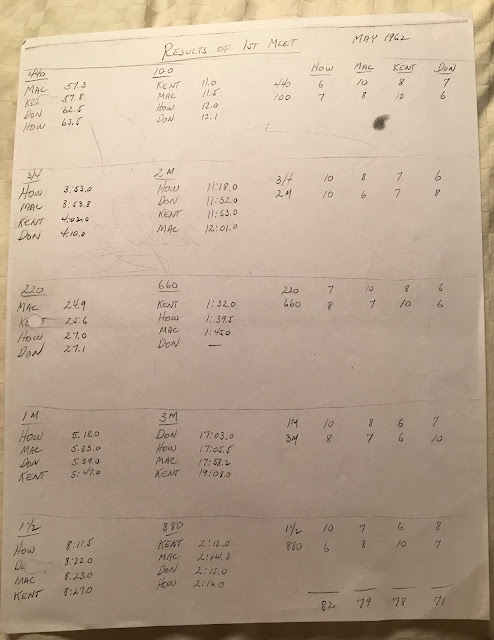 RESULTS OF 1ST MEET MAY 1962
440 100 HOW MAC KENT DON
MAC 57.3 KENT 11.0 440 6 10 8 7
KENT 57.8 MAC 11.5 100 7 8 10 6
DON 62.5 HOW 12.0
HOW 63.5 DON 12.1
3/4 2M
HOW 3:53.0 HOW 11:18.0 3/4 10 8 7 6
MAC 3:53.8 DON 11:52.0 2M 10 6 7 8
KENT 4:02.0 KENT 11:53.0
DON 4:10.0 MAC 12:01.0
220 660 220 7 10 8 6
MAC 24.9 KENT 1:32.0 660 8 7 10 6
KENT 25.6 HOW 1:39.5
HOW 27.0 MAC 1:45.0
DON 27.1 DON —
1M 3M 1M 10 8 6 7
HOW 5.18.0 DON 17:03.0 3M 8 7 6 10
MAC 5:33.0 HOW 17:05.5
DON 5:39.0 MAC 17:58.2
KENT 5:47.0 KENT 19:08.0
1 1/2 880 1 1/2 10 7 6 8
HOW 8:11.5 KENT 2:12.0 880 6 8 10 7
8:22.0 MAC 2:14.3
MAC 8:23.0 DON 2:15.0
KENT 8:27.0 HOW 2:16.0
82 79 78 71